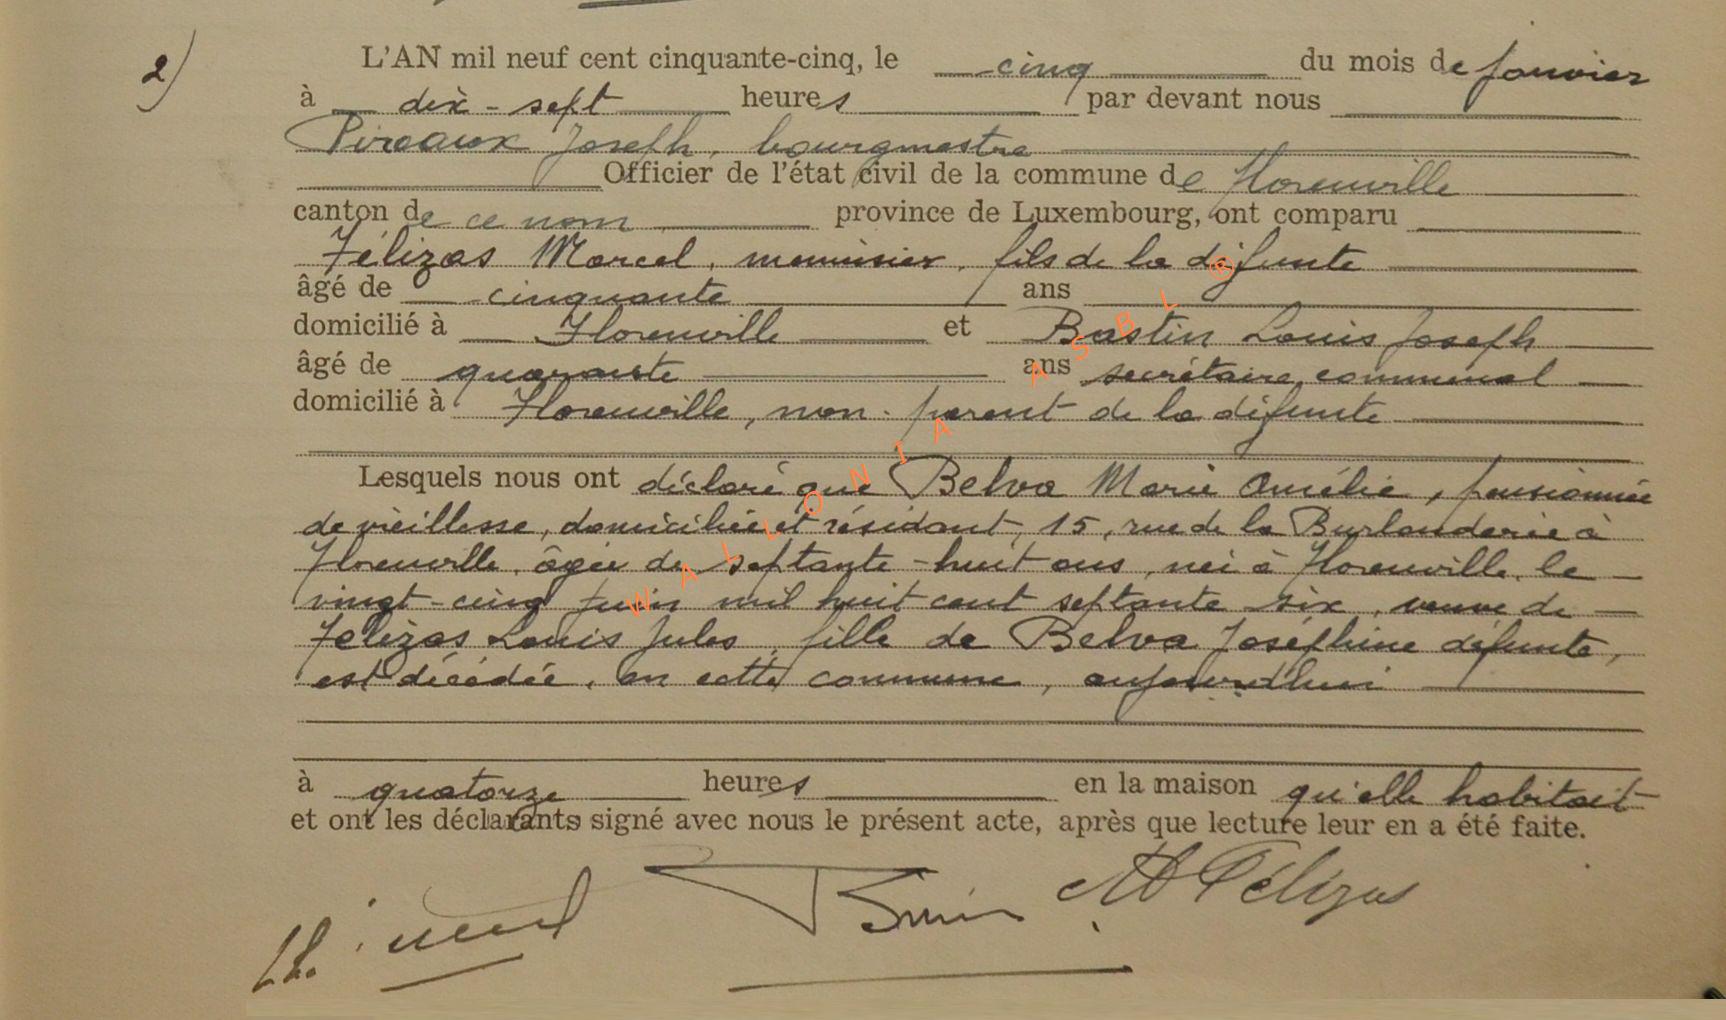 2)
L'AN mil neuf cent cinquante-cinq, le cinq du mois de janvier
à dix-sept heures par devant nous
Pireaux Joseph, bourgmestre
Officier de l'état civil de la commune de Florenville
canton de ce nom province de Luxembourg, ont comparu
Félizas Marcel, menuisier, fils de la défunte
âgé de cinquante ans
domicilié à Florenville et Bastin Louis Joseph
âgé de quarante ans secrétaire communal
domicilié à Florenville, non-parent de la défunte
Lesquels nous ont déclaré que Belva Marie Amélie, pensionnée
de vieillesse, domiciliée et résidant, 15, rue de la Burlanderie à
Florenville, âgée de septante-huit ans, née à Florenville, le
vingt-cinq juin mil huit cent septante six, veuve de
Félizas Louis Jules, fille de Belva Joséphine défunte,
est décédée, en cette commune, aujourd'hui
à quatorze heures en la maison qu'elle habitait
et ont les déclarants signé avec nous le présent acte, après que lecture leur en a été faite.
M Félizas
WALLONIA ASBL ®